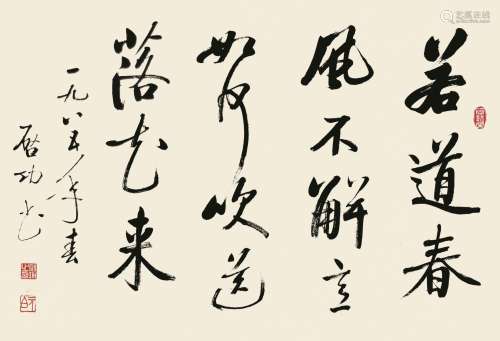 若道春
风不解意
如何吹送
落花来
一九八五年春
启功书